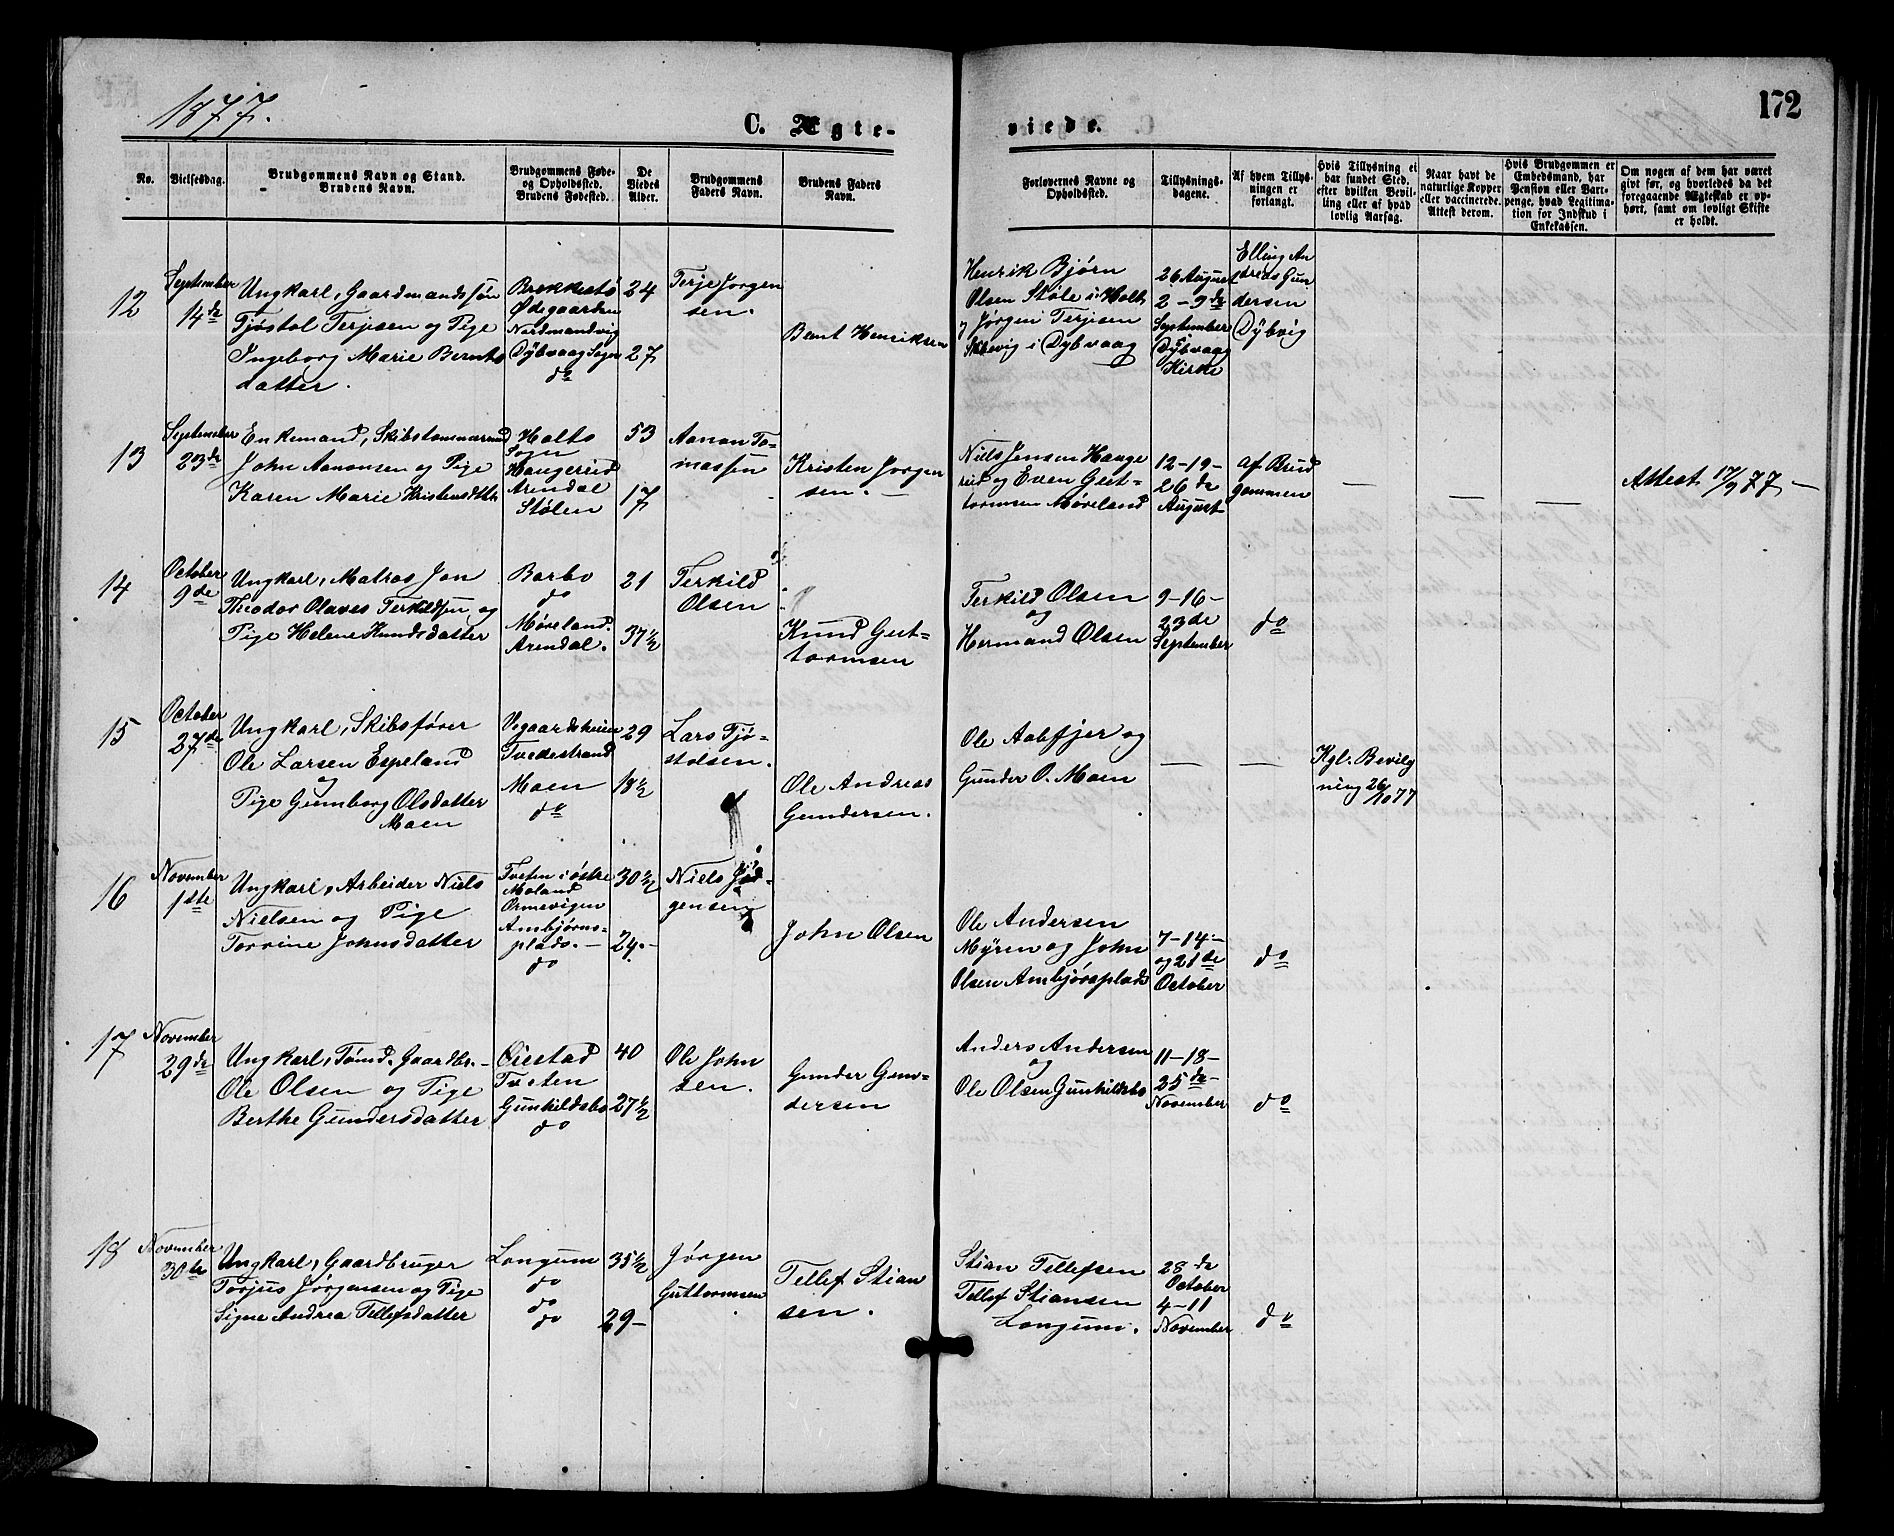 1877.
C. Ægte-
viede.
172
No.
Vielsesdag.
Brudgommens Navn og Stand.
Brudens Navn.
Brudgommens Føde-
og Opholdssted.
Brudens Fødested.
De
Viedes
Alder.
Brudgommens
Faders Navn.
Brudens Faders
Navn.
Forlovernes Navne og
Opholdssted.
Tillysnings-
dagene.
Af hvem Tillys-
ningen er
forlangt.
Hvis Tillysning ei
har fundet Sted,
efter hvilken Bevil-
ling eller af hvad
lovlig Aarsag.
Naar havt de
naturlige Kopper
eller vaccinerede.
Attest derom.
Hvis Brudgommen er
Embedsmand, har
Pension eller Vart-
penge, hvad Legitima-
tion for Indskud i
Enkekassen.
Om nogen af dem har været
gift før, og hvorledes da det
foregaaende Ægteskab er op-
hørt, samt om lovligt Skifte
er holdt.
12
September
14de
Ungkarl, Gaardmandssøn
Tjøstol Terjesen og Pige
Ingeborg Marie Bernts
datter.
Brekkestø
Ødegaarden
Nordmandvig
Dybvaag Sogn
do
24
27
Terje Jorgen
sen.
Bernt Henriksen
Henrik Bjørn
Olsen Støle i Holt
Jørgen Terjesen
i Dybvaag
26 August
2-9de
September
Dybvaag
Kirke
Elling An
dreas Gun
dersen
Dybvig
13
September
23de
Enkemand, Skibstømmermand
John Aanonsen og Pige
Karen Marie Kristensdttr
Holts
Sogn
Haugereid
Arendal
Stølen
53
17
Aanon To-
massen
Kristen Jorgen
sen.
Niels Jensen Hauge
reid og Even Gut-
tormsen Møreland
12-19-
26de
August
af Brud
gommen
Attest 17/9 77
14
October
9de
Ungkarl, Matros Jon
Theodor Olaves Terkildsen og
Pige Helene Knudsdatter
Barbo
do
Møreland.
Arendal.
21
37 1/2
Terkild
Olsen
Knud Gut-
tormsen
Terkild Olsen
og
Hermand Olsen
9-16-
23de
September
do
15
October
27de
Ungkarl, Skibsfører
Ole Larsen Espeland
og
Pige Gunnborg Olsdatter
Moen
Vegaardsheien
Tvedestrand
Moen
do
29
18 1/2
Lars Tjø-
stolsen.
Ole Andreas
Gundersen.
Ole Aabfjer og
Gunder O. Moen
Kgl. Bevilg
ning 26/10 77
16
November
1ste
Ungkarl, Arbeider Niels
Nielsen og Pige
Torrine Johnsdatter
Tveten i østre
Moland
Ormevigen
Ambjørns-
plads.
do
30 1/2
24.
Niels Jør-
gensen
John Olsen
Ole Andersen
Myren og John
Olsen Ambjørnsplads
7-14-
og 21de
October
do
17
November
29de
Ungkarl, Tømd. Gaardbr.
Ole Olsen og Pige
Berthe Gundersdatter
Øiestad
Tveten
Gunhildsbo
do
40
27 1/2
Ole John
sen.
Gunder Gun-
dersen
Anders Andersen
og
Ole Olsen Gunhildsbo
11-18-
25de-
November
do
18
November
30te
Ungkarl, Gaardbruger
Torjus Jørgensen og Pige
Signe Andrea Tellefsdatter
Longum
do
do
do
35 1/2
29-
Jørgen
Guttormsen
Tellef Stian
sen.
Stian Tellefsen
Tellef Stiansen
Longum.
28de
October
4-11
November
do